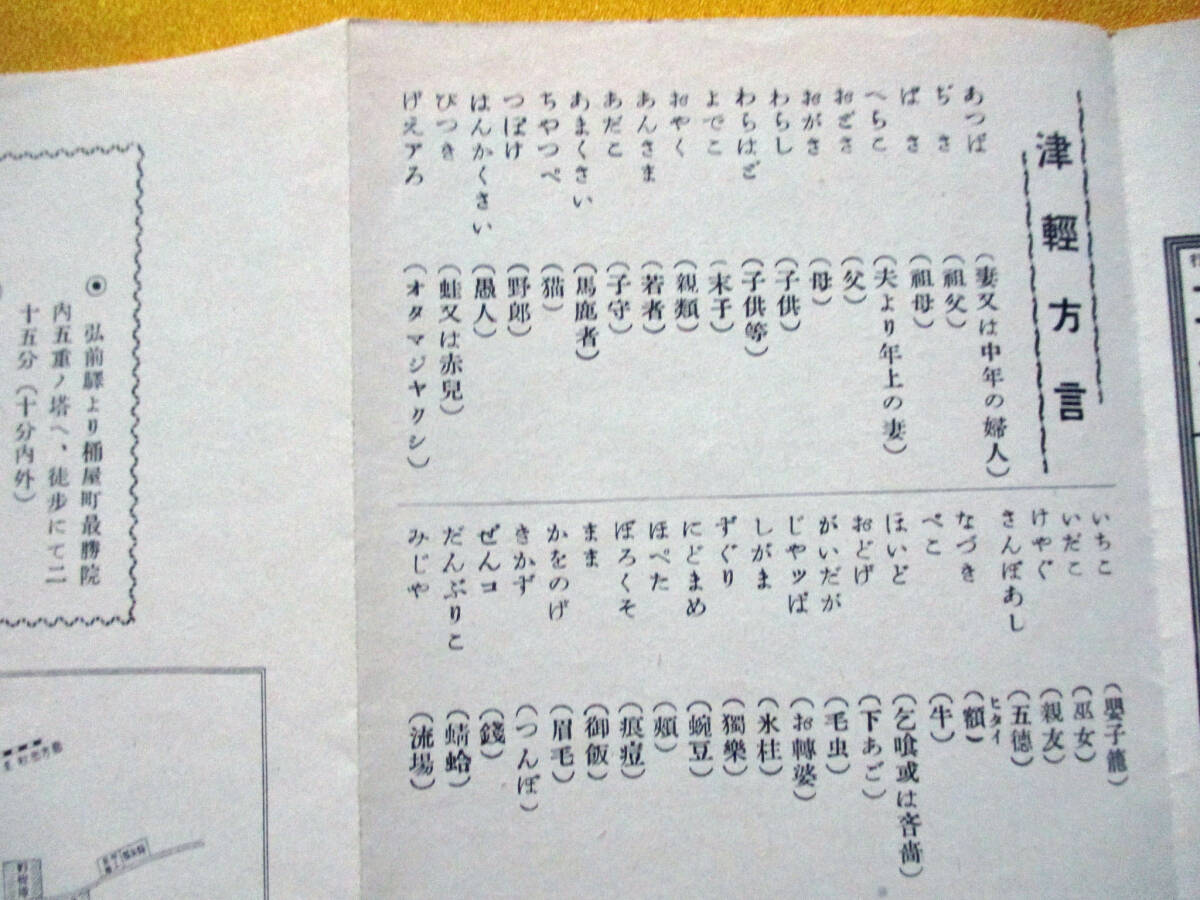 津輕方言
あつぱ（妻又は中年の婦人）
ぢさ（祖父）
ばさ（祖母）
へらこ（夫より年上の妻）
おどさ（父）
おがさ（母）
わらし（子供）
わらはど（子供等）
よでこ（末子）
おやく（親類）
あんさま（若者）
あだこ（子守）
あまくさい（馬鹿者）
ちやつぺ（猫）
つぼけ（野郎）
はんかくさい（愚人）
びつき（蛙又は赤兒）
げえアろ（オタマジヤクシ）
いちこ（嬰子籠）
いだこ（巫女）
けやぐ（親友）
さんぼあし（五德）
なづき（額）
ヒタイ
べこ（牛）
ほいど（乞喰或は吝嗇）
おどげ（下あご）
がいだが（毛虫）
じやッぱ（お轉婆）
しがま（氷柱）
ずぐり（獨樂）
にどまめ（蜿豆）
ほぺた（頰）
ぼろくそ（痕痘）
まま（御飯）
かをのげ（眉毛）
きかず（つんぼ）
ぜんコ（錢）
だんぶりこ（蜻蛉）
みじや（流場）
◉ 弘前驛より桶屋町最勝院
内五重ノ塔へ、徒步にて二
十五分（十分内外）